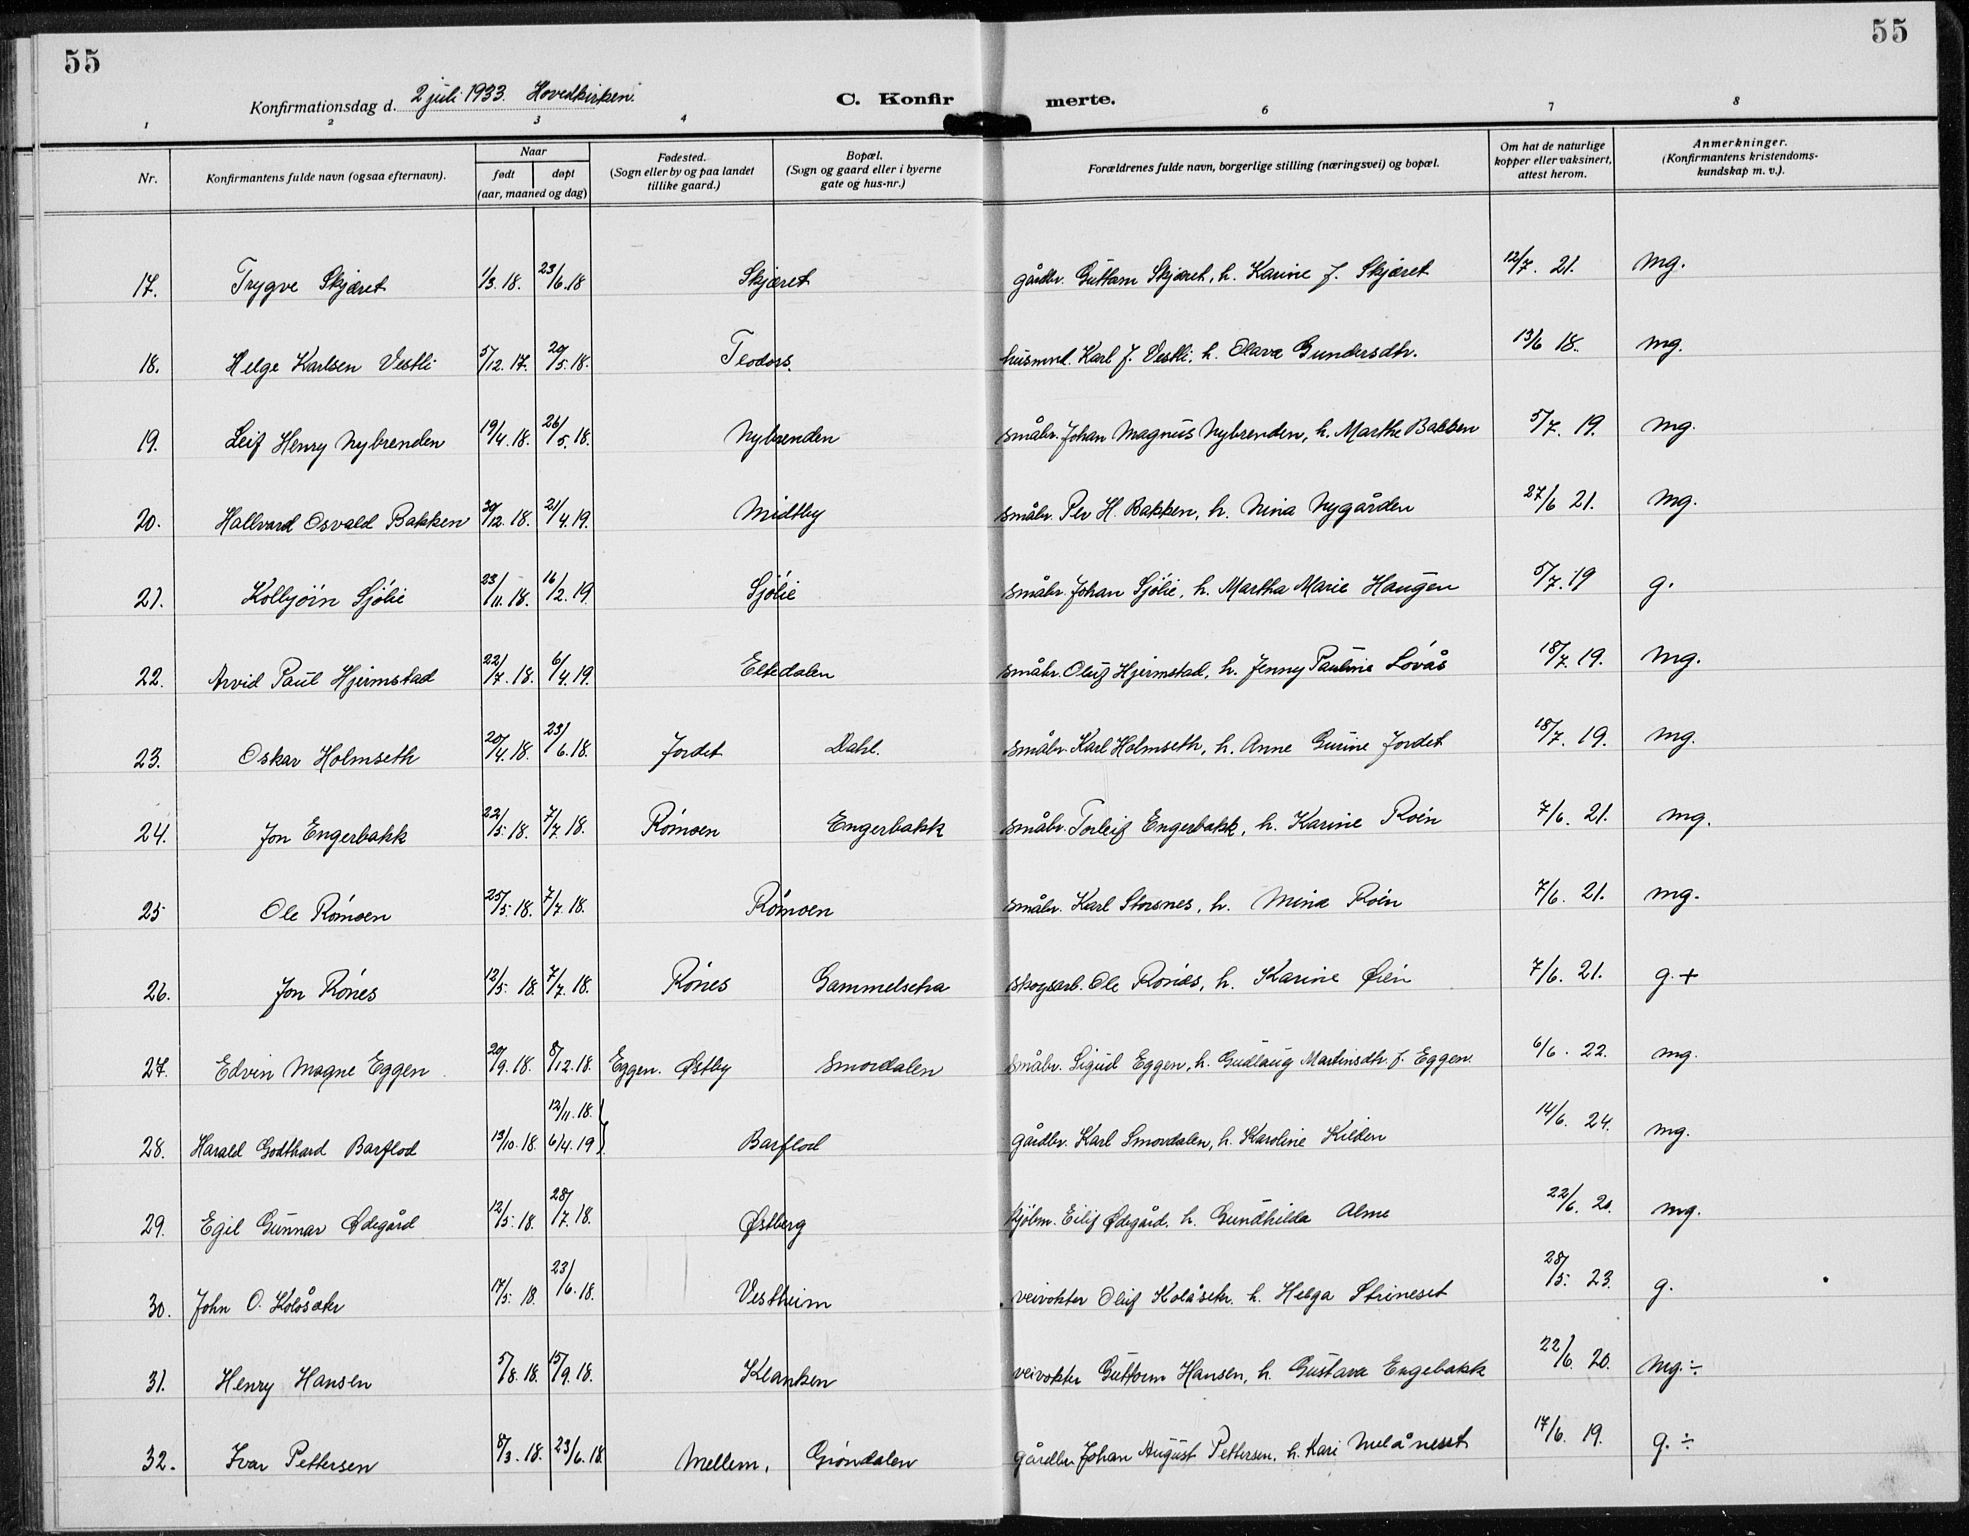 55
55
Konfirmationsdag d. 2 juli 1933. Hovedkirken.
C. Konfir merte.
1 2 3 4 6 7 8
Nr.
Konfirmantens fulde navn (ogsaa efternavn).
Naar
født
døpt
(aar, maaned og dag)
Fødested.
(Sogn eller by og paa landet
tillike gaard.)
Bopæl.
(Sogn og gaard eller i byerne
gate og hus-nr.)
Forældrenes fulde navn, borgerlige stilling (næringsvei) og bopæl.
Om hat de naturlige
kopper eller vaksinert,
attest herom.
Anmerkninger.
(Konfirmantens kristendoms-
kundskap m. v.).
17. Trygve Skjæret 1/3. 18. 23/6. 18 Skjæret gårdbr. Guttorm Skjæret, h. Karine f. Skjæret 12/7. 21. Mg.
18. Helge Karlsen Vestli 5/12. 17. 20/5. 18. Teodors. husmnd. Karl J. Vestli, h. Olava Gundersdtr. 13/6 18. Mg.
19. Leif Henry Nybrenden 19/4. 18. 26/5. 18. Nybrenden småbr. Johan Magnus Nybrenden, h. Marthe Bakken 5/7. 19. Mg.
20. Hallvard Osvald Bakken 30/12. 18. 21/4. 19. Midtby småbr. Per H. Bakken, h. Nina Nygården 27/6 21. Mg.
21. Kolbjörn Sjölie 23/11. 18. 16/2. 19. Sjölie småbr. Johan Sjölie, h. Martha Marie Haugen 5/7. 19 g.
22. Arvid Paul Hjermstad 22/7. 18. 6/4. 19. Eltedalen småbr. Oluf Hjermstad, h. Jenny Pauline Lövås 18/7. 19. Mg.
23. Oskar Holmseth 20/4. 18. 23/6. 18. Jordet Dahl. småbr. Karl Holmseth, h. Anne Gurine Jordet 18/7. 19. Mg.
24. Jon Engerbakk 22/5. 18. 7/7. 18. Römoen Engerbakk småbr. Torleif Engerbakk, h. Karine Röen 7/6. 21. Mg.
25 Ole Römoen 25/5. 18. 7/7. 18. Römoen småbr. Karl Storsnes, h. Mina Röen 7/6. 21. Mg.
26. Jon Rönes 12/5. 18. 7/7. 18. Rönes Gammelsetra skogsarb. Ole Rönes, h. Karine Øien 7/6. 21. g. +
27. Edvin Magne Eggen 20/9. 18. 8/12. 18. Eggen. Østby Smordalen småbr. Sigurd Eggen, h. Gudlaug Martinsdtr. f. Eggen. 6/6. 22. mg.
12/11. 18.
28. Harald Godthard Barflod 13/10. 18 6/4. 19 Barflod gårdbr. Karl Smordalen, h. Karoline Kilden 14/6. 24. mg.
29. Egil Gunnar Ødegård 12/5. 18. 28/7. 18. Østberg kjöbm. Eilif Ødegård. h. Gundhilda Alme 22/6. 20. mg.
30. John O. Kolåsætr 17/5. 18. 23/6. 18. Vestheim veivokter Oluf Kolåsetr. h. Helga Strineset 28/5. 23. g.
31. Henry Hansen 5/8. 18. 15/9. 18. Klanken veivokter Guttorm Hansen, h. Gustava Engebakk 22/6. 20. Mg. ÷
32. Ivar Pettersen 8/3. 18. 23/6. 18. Mellem, Gröndalen gårdbr. Johan August Pettersen, h. Kari Melåneset 17/6. 19. g. ÷